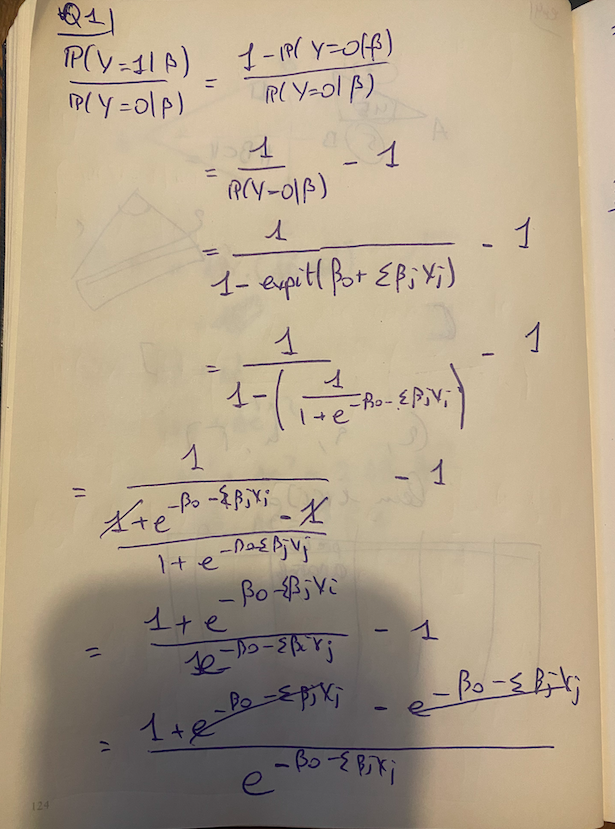 Q1
P(Y=1|β) / P(Y=0|β) = (1-P(Y=0|β)) / P(Y=0|β)
= 1 / P(Y=0|β) - 1
= 1 / (1-expit(β0+Σβjxj)) - 1
= 1 / (1-(1 / (1+e^(-β0-Σβjxj)))) - 1
= 1 / ((1+e^(-β0-Σβjxj) - 1) / (1+e^(-β0-Σβjxj))) - 1
= (1+e^(-β0-Σβjxj)) / e^(-β0-Σβjxj) - 1
= (1+e^(-β0-Σβjxj) - e^(-β0-Σβjxj)) / e^(-β0-Σβjxj)
124